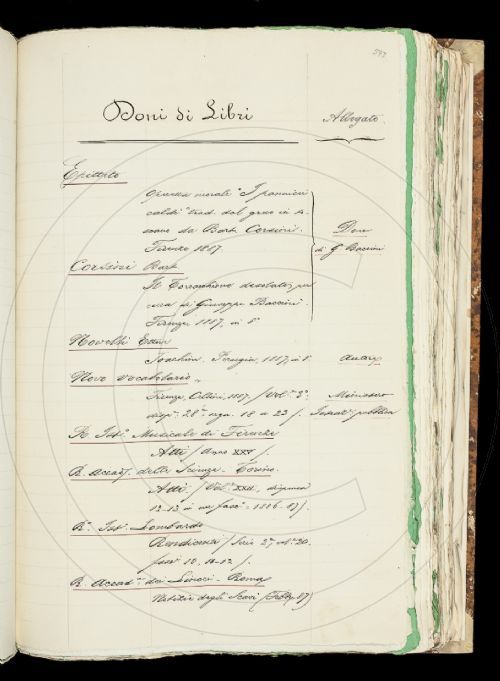 547
Doni di Libri
Allegato
Epitteto
Operetta morale "I
caldi" trad. dal greco in
da Bart. Corsini.
Firenze 1887.
Dono
di G. Baccini
Corsini Bart.
Il Torracchione desolato, per
cura di Giuseppe Baccini
Firenze, 1887, in 8°
Novelli Ettore
Perugia, 1887, in 8°
Autore
Novo vocabolario
Firenze, Cellini, 1887. / Vol. 3°
disp. 28ª 18 a 23 /.
Ministero
Istruz. pubblica
R. Ist. Musicale di Firenze
Atti / Anno XXV /.
R. Accad. delle Scienze - Torino.
Atti / Vol. XXII, dispense
12-13 in un fasc. - 1886-87 /.
R. Ist. Lombardo
Rendiconti / Serie 2ª, vol. 20.
fasc. 10. 11-12 /.
R. Accad. dei Lincei - Roma
Notizie degli Scavi / Febb. 87 /